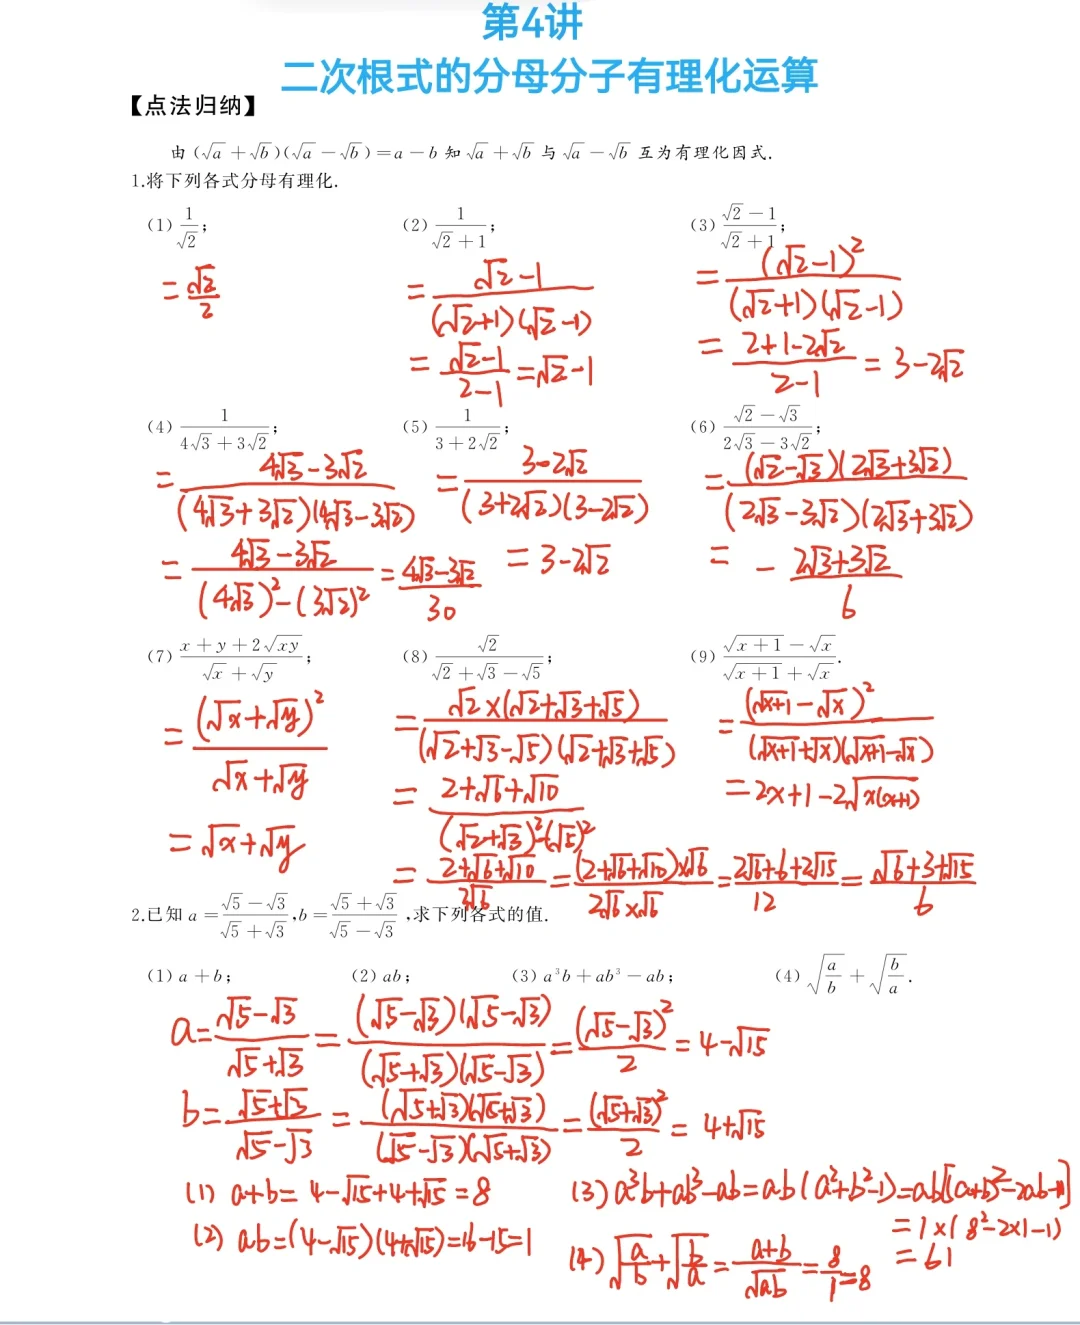 第4讲
二次根式的分母分子有理化运算
【点法归纳】
由(√a+√b)(√a-√b)=a-b 知√a+√b 与√a-√b 互为有理化因式.
1.将下列各式分母有理化.
(1) 1/√2; (2) 1/(√2+1); (3) (√2-1)/(√2+1);
=√2/2
=(√2-1)/((√2+1)(√2-1))
=(√2-1)/(2-1)=√2-1
=(√2-1)²/((√2+1)(√2-1))
=(2+1-2√2)/(2-1)=3-2√2
(4) 1/(4√3+3√2); (5) 1/(3+2√2); (6) (√2-√3)/(2√3-3√2);
=(4√3-3√2)/((4√3+3√2)(4√3-3√2))
=(4√3-3√2)/((4√3)²-(3√2)²)=(4√3-3√2)/30
=(3-2√2)/((3+2√2)(3-2√2))
=3-2√2
=(√2-√3)(2√3+3√2)/((2√3-3√2)(2√3+3√2))
=-(2√3+3√2)/6
(7) (x+y+2√xy)/(√x+√y); (8) √2/(√2+√3-√5); (9) (√(x+1)-√x)/(√(x+1)+√x).
=(√x+√y)²/(√x+√y)
=√x+√y
=√2×(√2+√3+√5)/((√2+√3-√5)(√2+√3+√5))
=(2+√6+√10)/((√2+√3)²-(√5)²)
=(2+√6+√10)/(2√6)=(2+√6+√10)×√6/(2√6×√6)=(2√6+6+2√15)/12=(√6+3+√15)/6
=(√(x+1)-√x)²/((√(x+1)+√x)(√(x+1)-√x))
=2x+1-2√(x(x+1))
2.已知 a=(√5-√3)/(√5+√3),b=(√5+√3)/(√5-√3),求下列各式的值.
(1)a+b; (2)ab; (3)a³b+ab³-ab; (4)√(a/b)+√(b/a).
a=(√5-√3)/(√5+√3)=(√5-√3)(√5-√3)/((√5+√3)(√5-√3))=(√5-√3)²/2=4-√15
b=(√5+√3)/(√5-√3)=(√5+√3)(√5+√3)/((√5-√3)(√5+√3))=(√5+√3)²/2=4+√15
(1) a+b=4-√15+4+√15=8
(2) ab=(4-√15)(4+√15)=16-15=1
(3) a³b+ab³-ab=ab(a²+b²-1)=ab[(a+b)²-2ab-1]
=1×(8²-2×1-1)
=61
(4) √(a/b)+√(b/a)=(a+b)/√ab=8/1=8